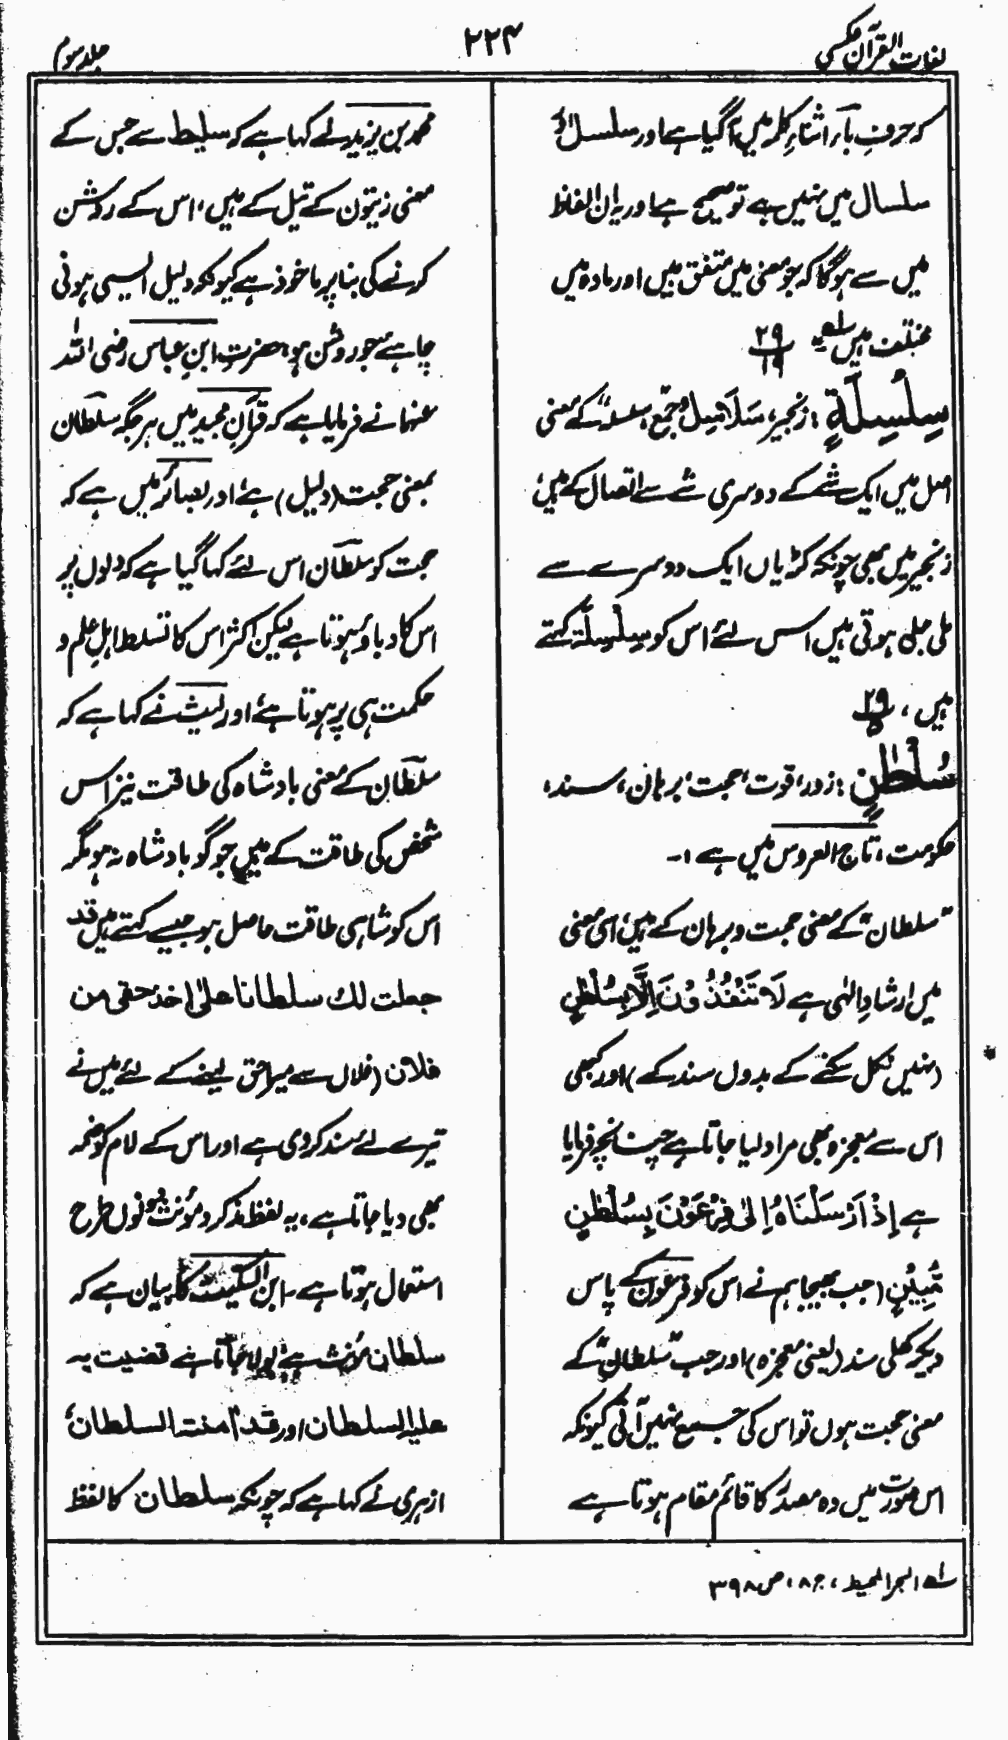 لغات القرآن عکسی
۲۲۴
جلد سوم
کہ حرفِ بآء اثناءِ کلمہ میں آگیا ہے اور سلسل اور
سلسال میں نہیں ہے تو صحیح ہے اور یہ ان الفاظ
میں سے ہوگا کہ جو معنی میں متفق ہیں اور مادہ میں
مختلف ہیں لہ ۲۹/۱۹
سِلْسِلَةٍ: زنجیر، سَلَاسِلُ جمع، سلسلہ کے معنی
اصل میں ایک شے کے دوسری شے سے اتصال کے ہیں،
زنجیر میں بھی چونکہ کڑیاں ایک دوسرے سے
ملی جلی ہوتی ہیں اسس لئے اس کو سِلْسِلَة کہتے
ہیں، ۲۹/۵
سُلْطٰنٍ: زور، قوت، حجت، برہان، سند،
حکومت، تاج العروس میں ہے :۔
"سلطان" کے معنی حجت و برہان کے ہیں، اسی معنی
میں ارشادِ الٰہی ہے لَا تَنْفُذُوْنَ اِلَّا بِسُلْطٰنٍ
(نہیں نکل سکنے کے بدول سند کے) اور کبھی
اس سے معجزہ بھی مراد لیا جاتا ہے چنانچہ فرمایا
ہے اِذْ اَرْسَلْنَاهُ اِلٰى فِرْعَوْنَ بِسُلْطٰنٍ
مُّبِيْنٍ (جب بھیجا ہم نے اس کو فرعون کے پاس
دیکر کھلی سند (یعنی معجزہ) اور جب "سلطان" کے
معنی حجت ہوں تو اس کی جمع نہیں آتی کیونکہ
اس صورت میں وہ مصدر کا قائم مقام ہوتا ہے
محمد بن یزید نے کہا ہے کہ سلیط سے جس کے
معنی زیتون کے تیل کے ہیں، اس کے روشن
کرنے کی بنا پر ماخوذ ہے کیونکہ دلیل ایسی ہونی
چاہئے جو روشن ہو، حضرتِ ابنِ عباس رضی اللہ
عنہما نے فرمایا ہے کہ قرآنِ مجید میں ہر جگہ سلطان
بمعنی حجت (دلیل) ہے، اور بصائر میں ہے کہ
حجت کو سلطان اس لئے کہا گیا ہے کہ دلوں پر
اس کا دباؤ ہوتا ہے لیکن اکثر اس کا تسلط اہلِ علم و
حکمت ہی پر ہوتا ہے، اور لیث نے کہا ہے کہ
سلطان کے معنی بادشاہ کی طاقت نیز اس
شخص کی طاقت کے ہیں جو گو بادشاہ نہ ہو مگر
اس کو شاہی طاقت حاصل ہو جیسے کہتے ہیں قد
جعلت لك سلطانا علىٰ اخذ حقی من
فلان (فلاں سے میرا حق لینے کے لئے میں نے
تیرے لئے سند کردی ہے اور اس کے لام کو ضمہ
بھی دیا جاتا ہے، یہ لفظ مذکر و مؤنث دونوں طرح
استعمال ہوتا ہے۔ ابن السکیت کا بیان ہے کہ
سلطان مؤنث ہے، بولا جاتا ہے قضیت به
علیہ السلطان اور قد اٰمنته السلطان،
ازہری نے کہا ہے کہ چونکہ سلطان کا لفظ
لہ البحر المحیط، ج ۸، ص ۳۹۸